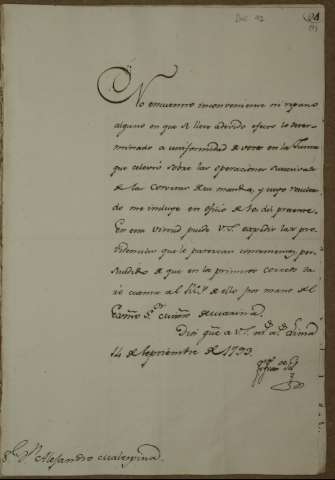 No encuentro inconveniente ni reparo
alguno en que se lleve a devido efecto lo deter-
minado a uniformidad de votos en la Junta
que celevró sobre las operaciones succesivas
de las Corvetas de su mando, y cuyo resulta-
do me incluye en oficio de 10 del presente.
En esta virtud puede V.S. expedir las pro-
videncias que le parezcan convenientes, per-
suadido de que en la primera ocasion da-
ré cuenta al de ello por mano del
de Marina.
Dios güe a V.S. m.s a.s Lima
14 de Septiembre de 1793.
S.r D.n Alejandro Malespina.